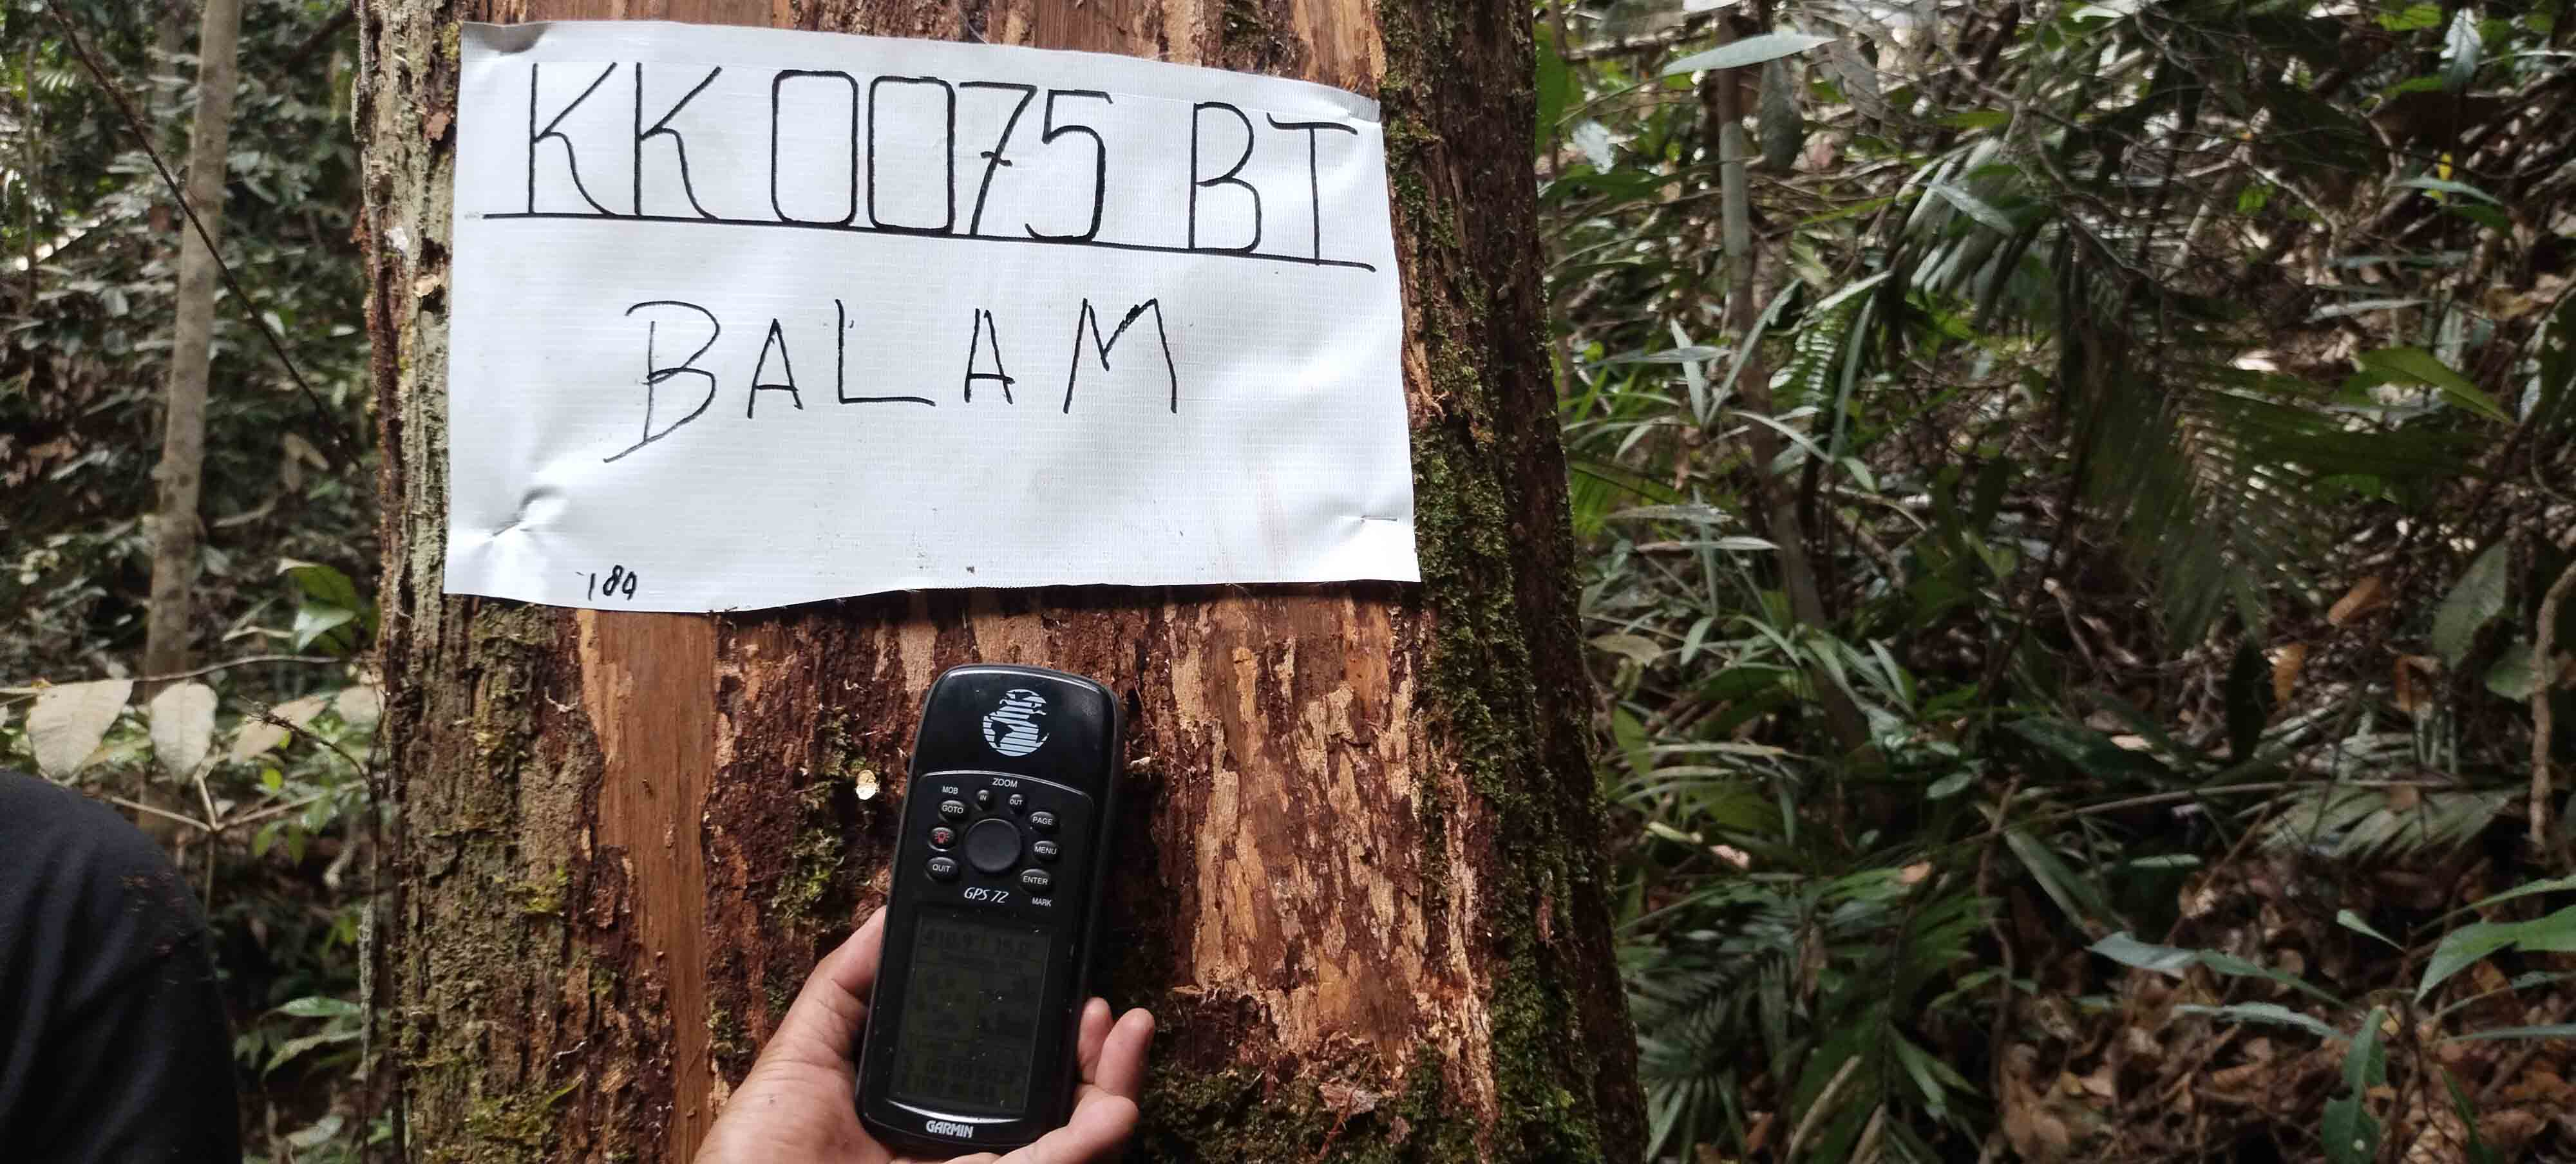 KK 0075 BT
BALAM
180
ZOOM
MOB
IN
OUT
GOTO
PAGE
MENU
QUIT
ENTER
GPS 72
MARK
GARMIN